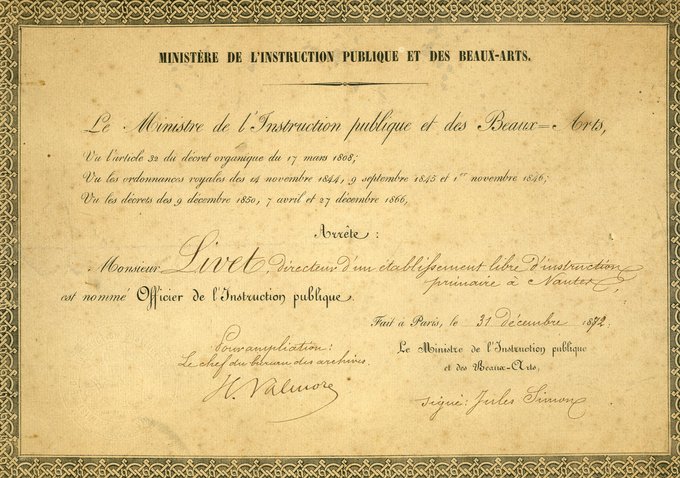 MINISTÈRE DE L'INSTRUCTION PUBLIQUE ET DES BEAUX-ARTS.
Le Ministre de l'Instruction publique et des Beaux=Arts,
Vu l'article 32 du décret organique du 17 mars 1808;
Vu les ordonnances royales des 14 novembre 1844, 9 septembre 1845 et 1er novembre 1846;
Vu les décrets des 9 décembre 1850, 7 avril et 27 décembre 1866,
Arrête :
Monsieur Livet, directeur d'un établissement libre d'instruction
primaire à Nantes,
est nommé Officier de l'Instruction publique.
Fait à Paris, le 31 Décembre 1872.
Pour ampliation:
Le chef du bureau des archives.
H. Valmore
Le Ministre de l'Instruction publique
et des Beaux-Arts,
signé: Jules Simon